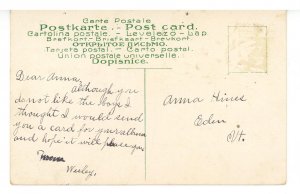 Carte Postale
Postkarte. - Post card.
Cartolina postale. - Levelezo - Lap
Brefkort - Briefkaart - Brevkort
ОТКРЫТОЕ ПИСЬМО.
Tarjeta postal. - Carta Postal.
Union postale universelle.
Dopisnice.
Dear Anna,
although you
do not like the boys I
thought I would send
you a card for yourself
and hope it will please you
Wesley.
Anna Hines
Eden
Vt.